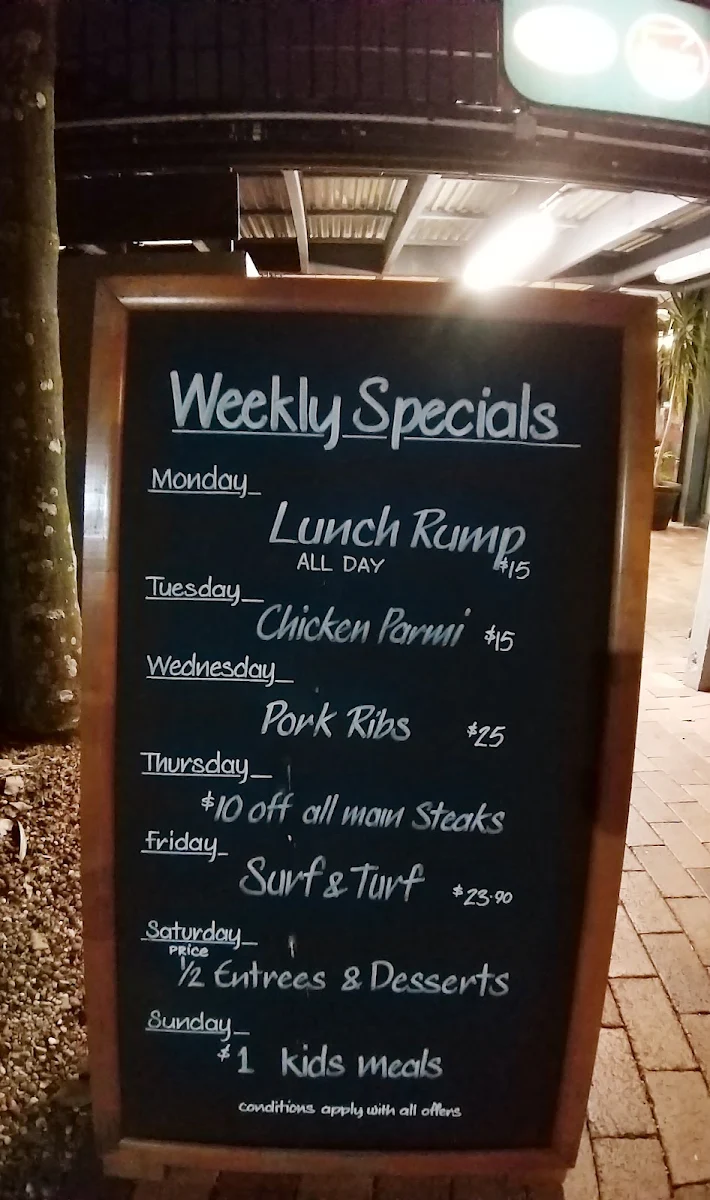 Weekly Specials
Monday
Lunch Rump
ALL DAY $15
Tuesday
Chicken Parmi $15
Wednesday
Pork Ribs $25
Thursday
$10 off all main Steaks
Friday
Surf & Turf $23.90
Saturday
PRICE
1/2 Entrees & Desserts
Sunday
$1 kids meals
conditions apply with all offers